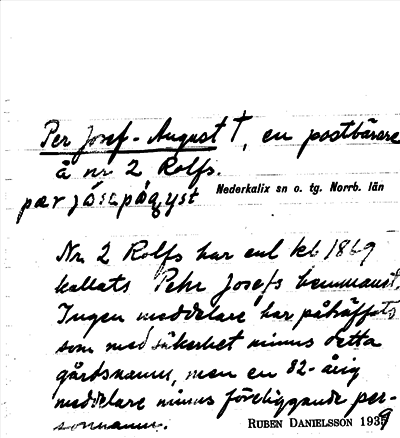 Per Josef-August †, en postbärare
å nr 2 Rolfs.
Nederkalix sn o. tg. Norrb. län
Nr. 2 Rolfs har enl kb 1869
kallats Pehr Josefs hemmanet.
Ingen meddelare har påträffats
som med säkerhet minns detta
gårdsnamn, men en 82-årig
meddelare minns föreliggande per-
sonnamn.
RUBEN DANIELSSON 1939